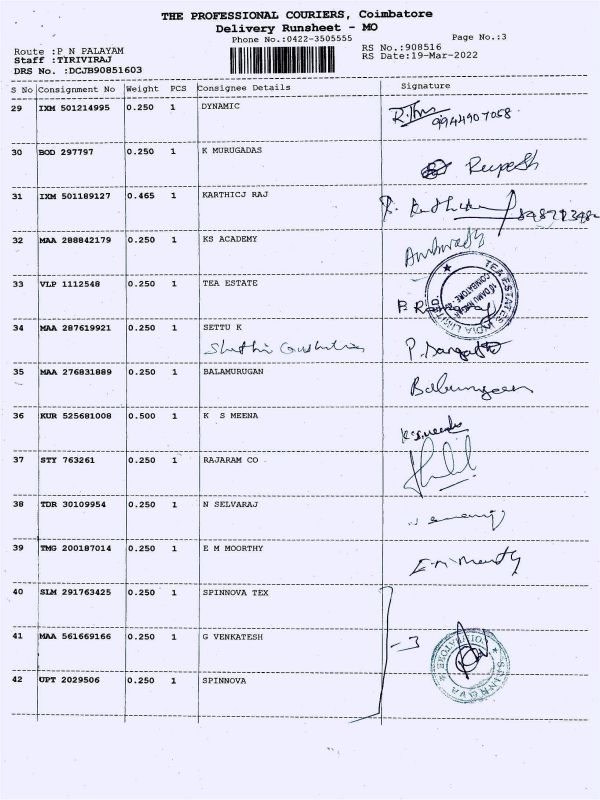 THE PROFESSIONAL COURIERS, Coimbatore
Delivery Runsheet - MO
Phone No.:0422-3505555 Page No.:3
Route :P N PALAYAM RS No.:908516
Staff :TIRIVIRAJ RS Date:19-Mar-2022
DRS No. :DCJB90851603
S No Consignment No Weight PCS Consignee Details Signature
29 IXM 501214995 0.250 1 DYNAMIC
9944907058
30 BOD 297797 0.250 1 K MURUGADAS
Rupesh
31 IXM 501189127 0.465 1 KARTHICJ RAJ
32 MAA 288842179 0.250 1 KS ACADEMY
33 VLP 1112548 0.250 1 TEA ESTATE
TEA ESTATES INDIA LIMITED
COIMBATORE
34 MAA 287619921 0.250 1 SETTU K
35 MAA 276831889 0.250 1 BALAMURUGAN
36 KUR 525681008 0.500 1 K S MEENA
K S Meena
37 STY 763261 0.250 1 RAJARAM CO
38 TDR 30109954 0.250 1 N SELVARAJ
39 TMG 200187014 0.250 1 E M MOORTHY
40 SLM 291763425 0.250 1 SPINNOVA TEX
41 MAA 561669166 0.250 1 G VENKATESH
- 3
SPINNOVA
42 UPT 2029506 0.250 1 SPINNOVA